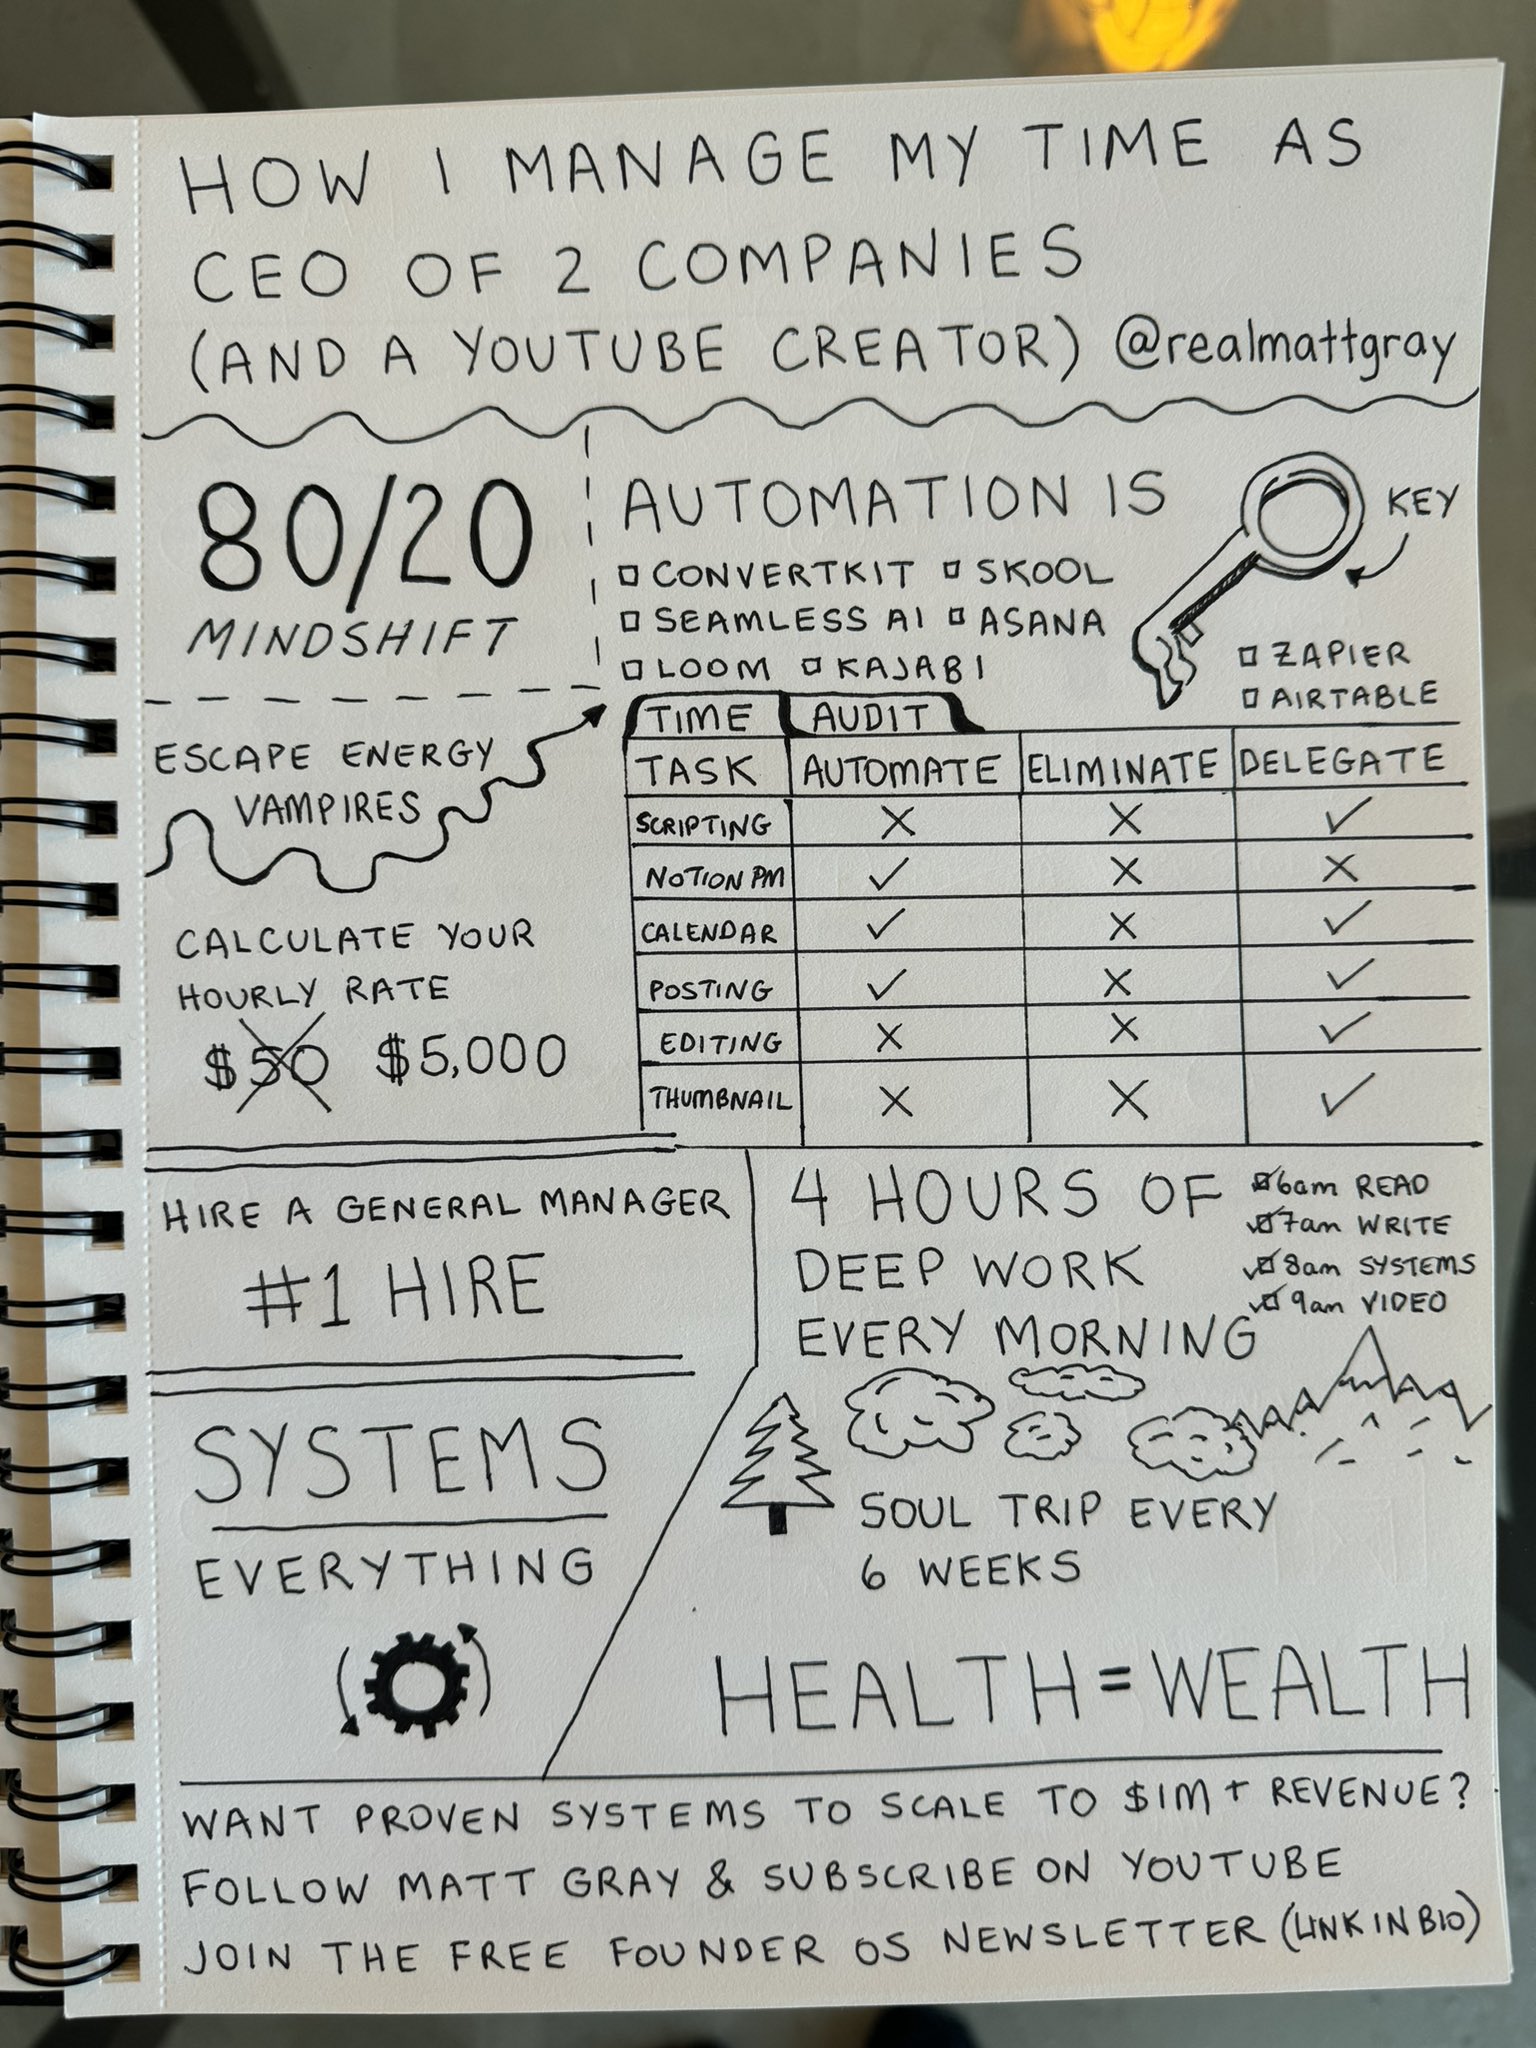 HOW I MANAGE MY TIME AS
CEO OF 2 COMPANIES
(AND A YOUTUBE CREATOR) @realmattgray
80/20
MINDSHIFT
AUTOMATION IS
KEY
CONVERTKIT SKOOL
SEAMLESS AI ASANA
LOOM KAJABI
ZAPIER
AIRTABLE
ESCAPE ENERGY
VAMPIRES
CALCULATE YOUR
HOURLY RATE
$50 $5,000
TIME AUDIT
TASK AUTOMATE ELIMINATE DELEGATE
SCRIPTING ✗ ✗ ✓
NOTION PM ✓ ✗ ✗
CALENDAR ✓ ✗ ✓
POSTING ✓ ✗ ✓
EDITING ✗ ✗ ✓
THUMBNAIL ✗ ✗ ✓
HIRE A GENERAL MANAGER
#1 HIRE
4 HOURS OF
DEEP WORK
EVERY MORNING
6am READ
7am WRITE
8am SYSTEMS
9am VIDEO
SYSTEMS
EVERYTHING
SOUL TRIP EVERY
6 WEEKS
HEALTH = WEALTH
WANT PROVEN SYSTEMS TO SCALE TO $1M+ REVENUE?
FOLLOW MATT GRAY & SUBSCRIBE ON YOUTUBE
JOIN THE FREE FOUNDER OS NEWSLETTER (LINK IN BIO)